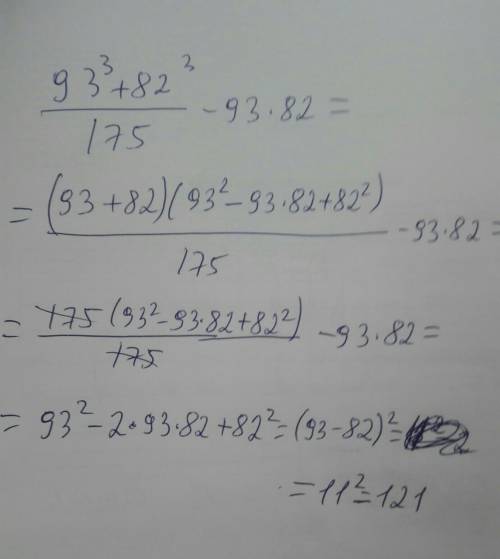 93³+82³
/175 - 93·82 =
= (93+82)(93²-93·82+82²)
/175 - 93·82 =
= 175 (93²-93·82+82²)
/175 - 93·82 =
= 93²-2·93·82+82²=(93-82)²=
=11²=121